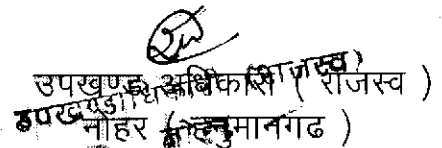 उपखण्ड अधिकारी ( राजस्व )
उपखण्ड अधिकारी (राजस्व)
नोहर ( हनुमानगढ )